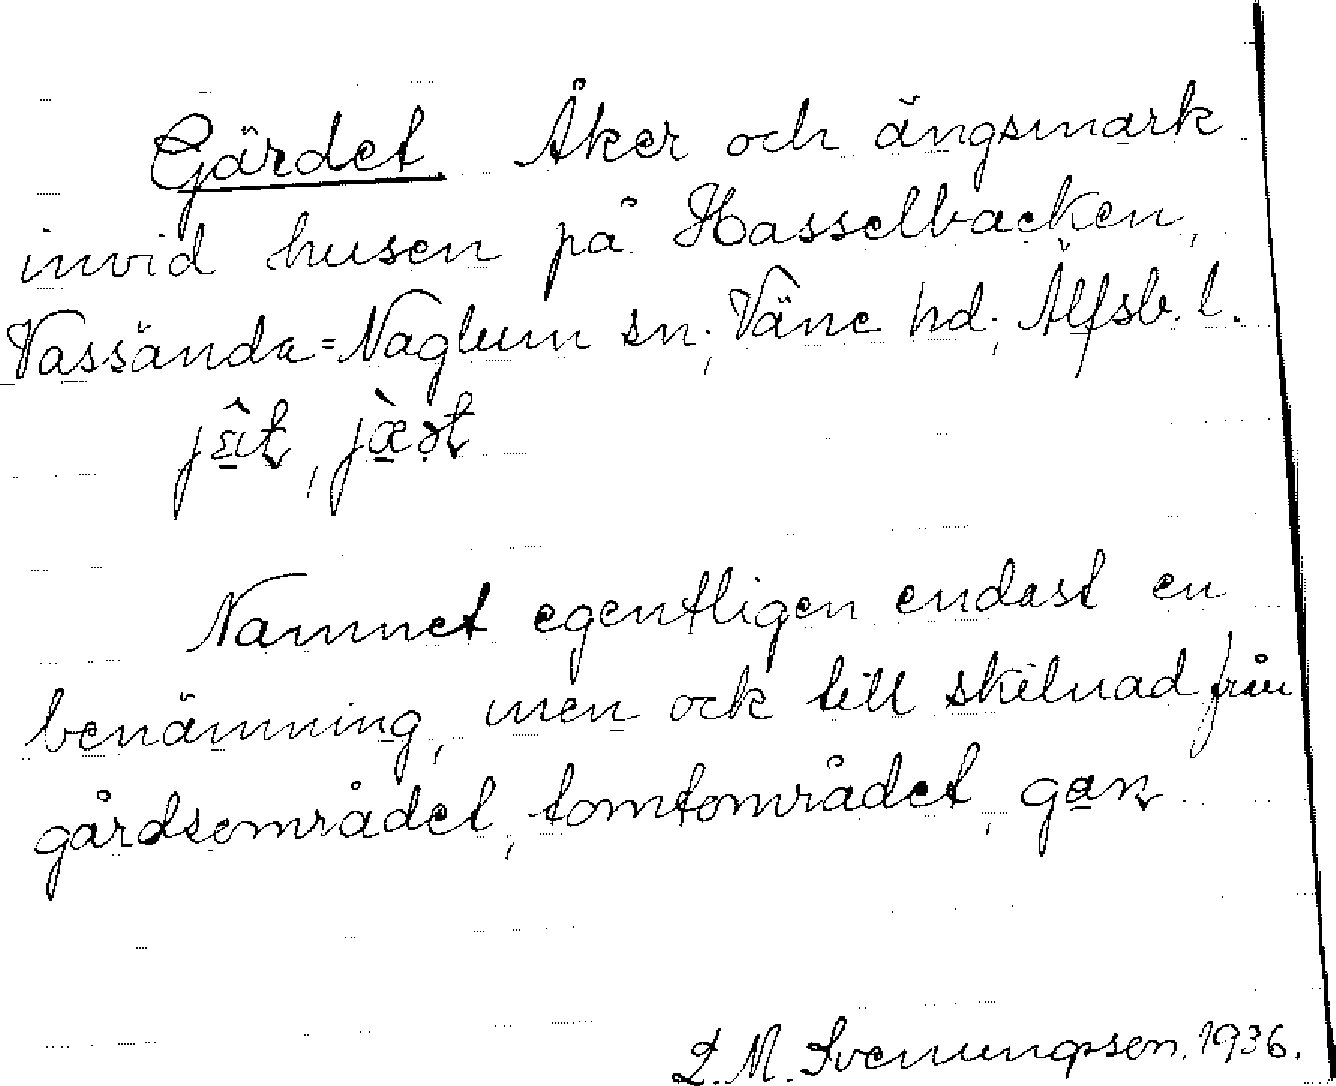 Gärdet. Åker och ängsmark
invid husen på Hasselbacken,
Vassända=Naglum sn, Väne hd, Älfsb. l.
Namnet egentligen endast en
benämning, men ock till skilnad från
gårdsområdet, tomtområdet,
L. M. Svenungsson. 1936.